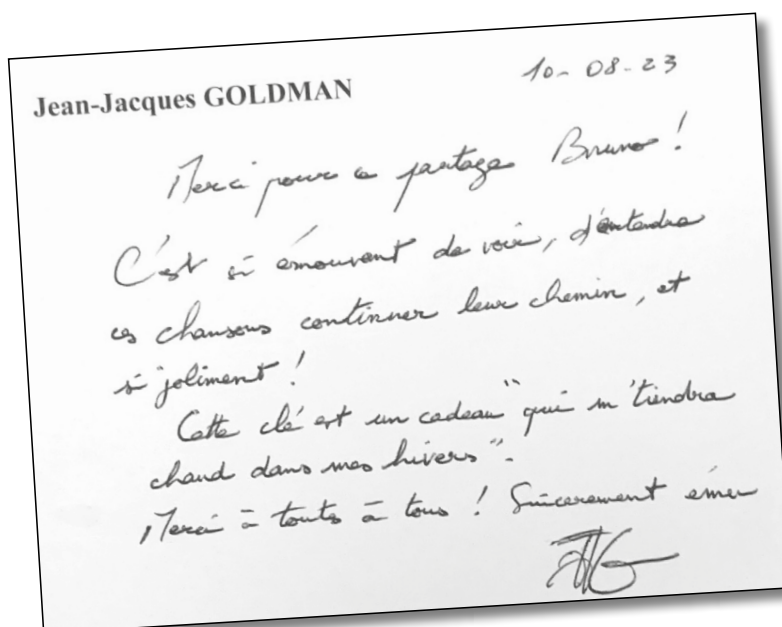 Jean-Jacques GOLDMAN
10-08-23
Merci pour ce partage Bruno !
C'est si émouvant de voir, d'entendre
ces chansons continuer leur chemin, et
si joliment !
Cette clé est un cadeau "qui m'tiendra
chaud dans mes hivers".
Merci à toutes à tous ! Sincèrement ému
JJG